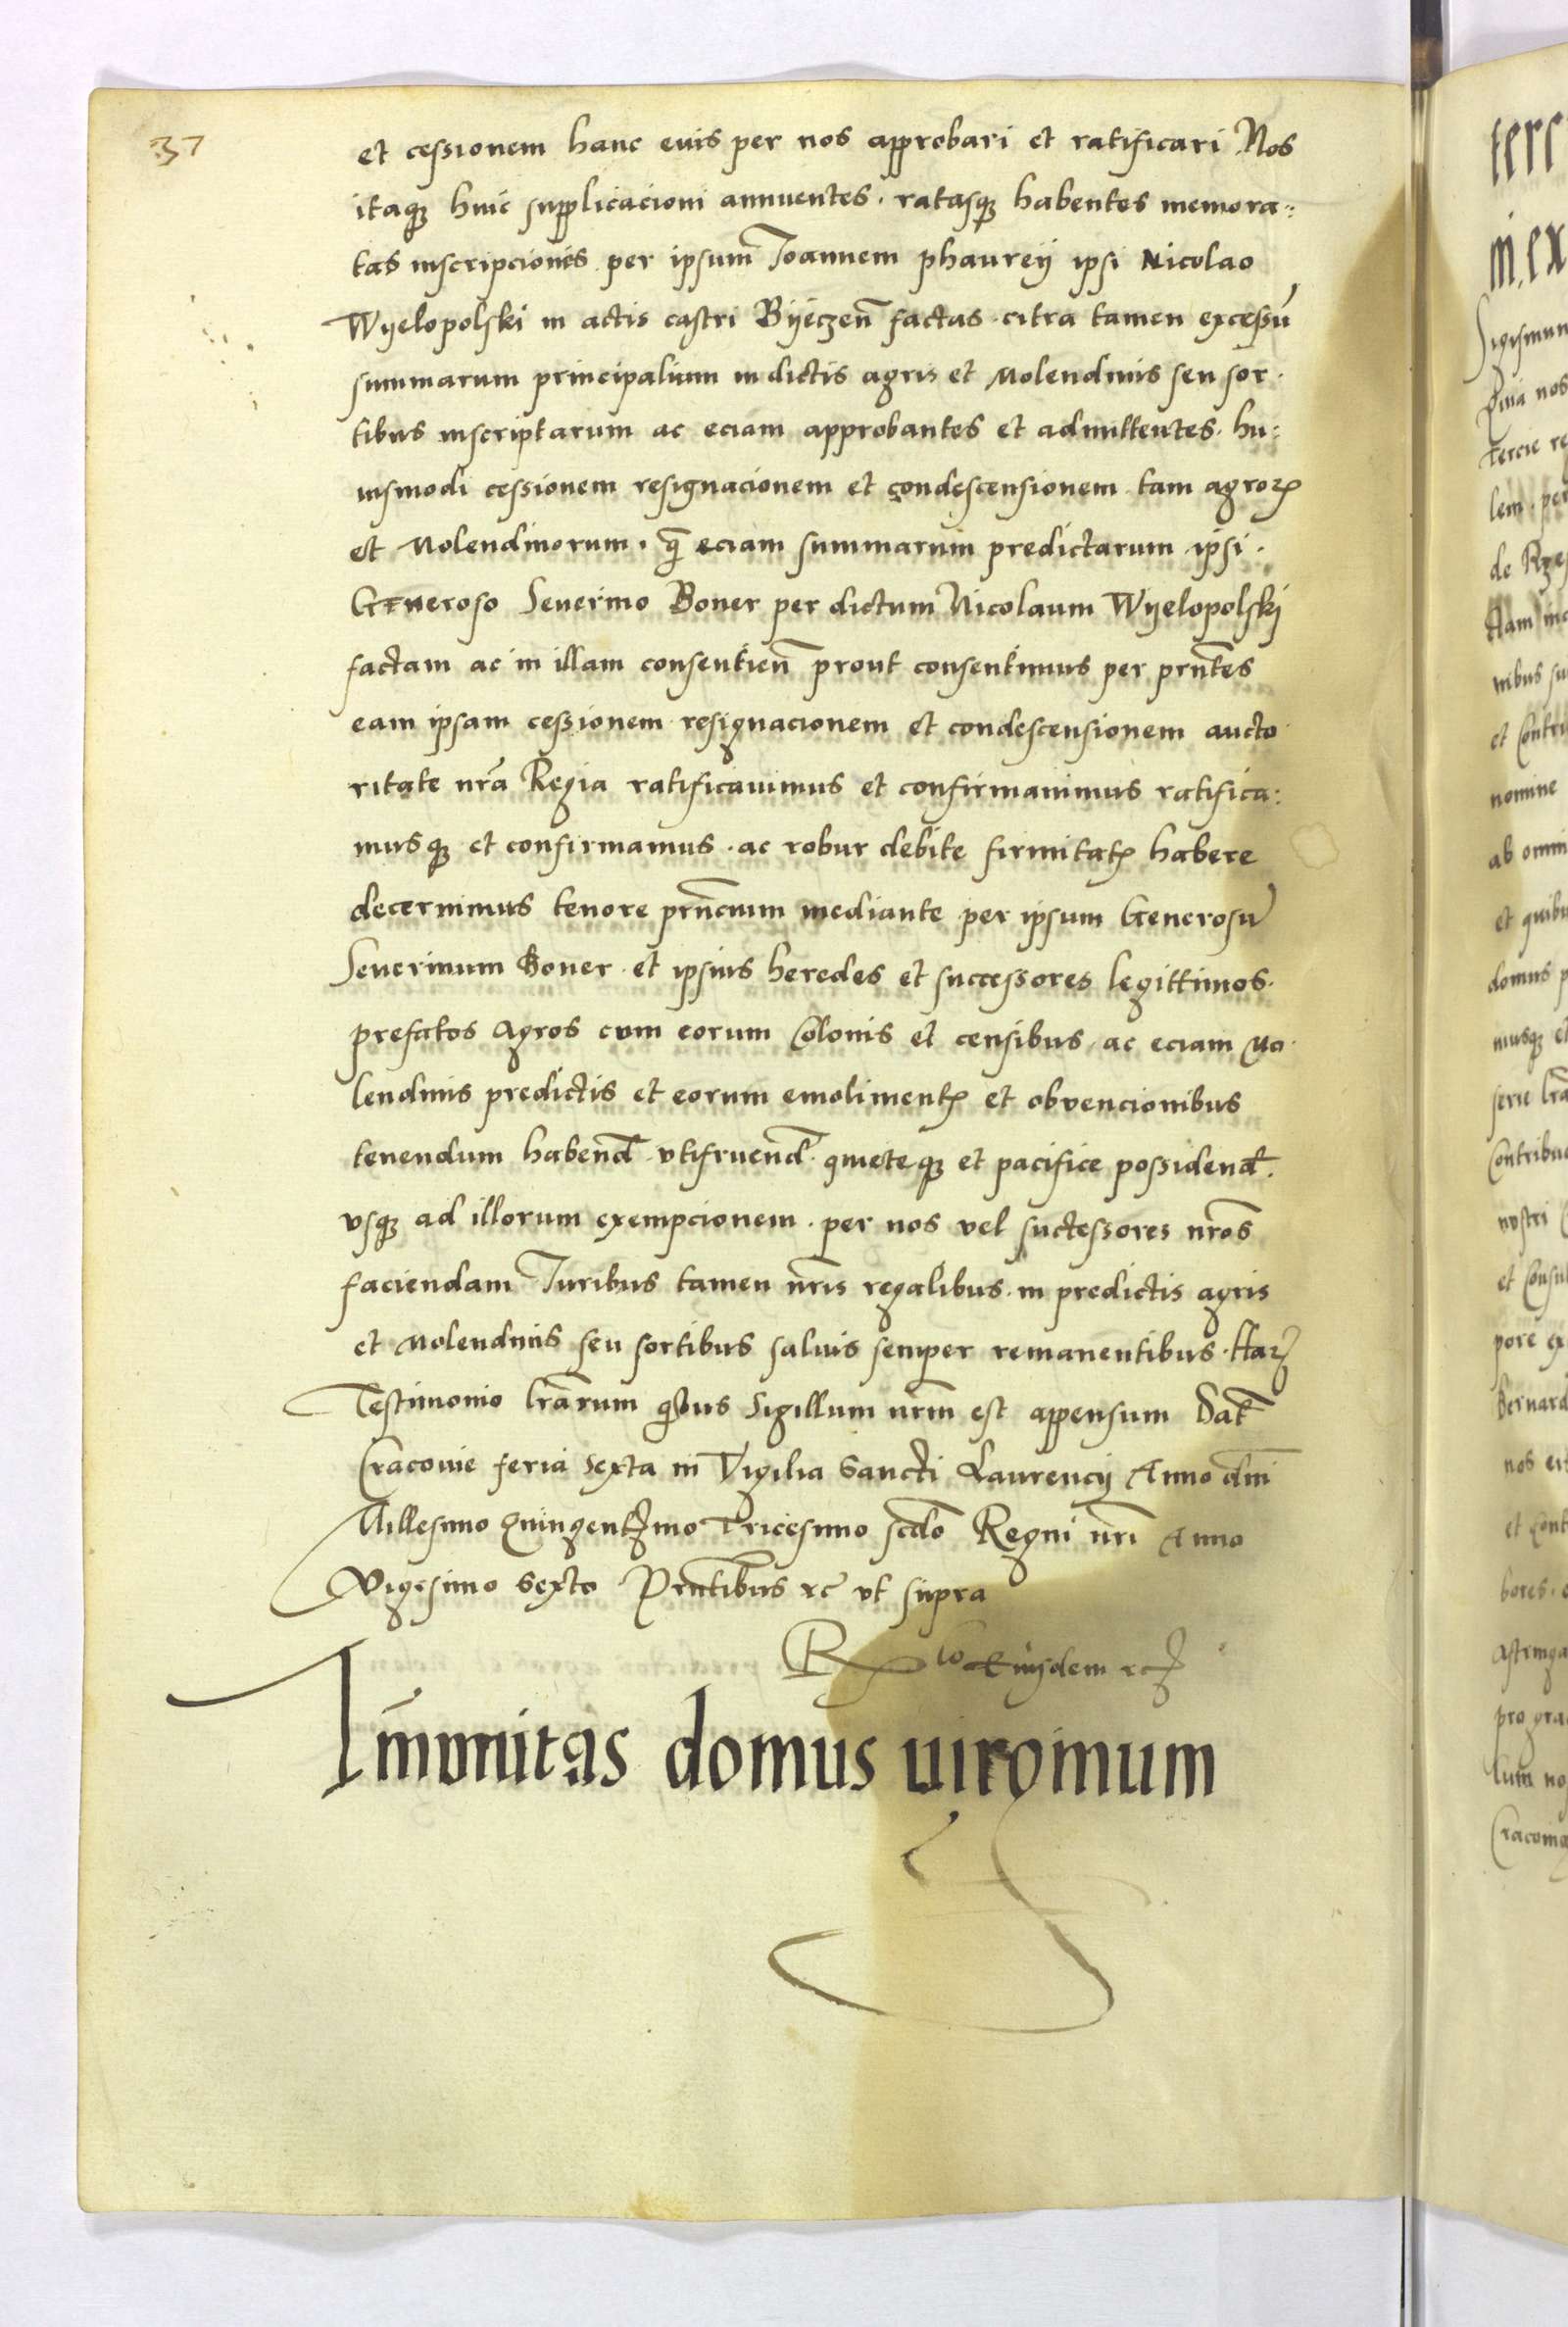 37
et cessionem hanc euis per nos approbari et ratificari Nos
itaqꝫ huic supplicacioni annuentes. ratasqꝫ habentes memora:
tas inscripciones per ipsum Joannem phaureÿ ipsi Nicolao
Wÿelopolski in actis castri Bÿeczeñ factas citra tamen excessũ
summarum principalium in dictis agris et Molendinis seu sor
tibus inscriptarum ac eciam approbantes et admittentes. hu:
iusmodi cessionem resignacionem et condescensionem tam agroꝝ
et Molendinorum. q̃ eciam summarum predictarum ipsi.
Generoso Seuerino Boner per dictum Nicolaum Wÿelopolskj
factam ac in illam consentieñ prout consentimus per prñtes
eam ipsam cessionem resignacionem et condescensionem aucto
ritate nrã Regia ratificauimus et confirmauimus ratifica:
musqꝫ et confirmamus. ac robur debite firmitatꝭ habere
decernimus tenore prñcium mediante per ipsum Generosũ
Seuerinum Boner et ipsius heredes et successores legittimos.
prefatos Agros cum eorum Colonis et censibus. ac eciam Mo
lendinis predictis et eorum emolimentꝭ et obvencionibus
tenendum habend̃ vtifruend̃ quieteqꝫ et pacifice possidend̃.
vsqꝫ ad illorum exempcionem. per nos vel successores nros̃
faciendam Juribus tamen nris̃ regalibus. in predictis agris
et Molendinis seu sortibus saluis semper remanentibus. Haꝝ
Testimonio lrãrum qibus Sigillum nrm̃ est appensum Dat̃
Cracouie feria Sexta in Vigilia Sancti Laurencij Anno dñi
Millesimo Quingentꝭmo Tricesimo scdõ Regni nri̅ Anno
Vigesimo Sexto Prñtibus &c̃ vt supra
Rlo Eiusdem &c̃
Im̃unitas domus